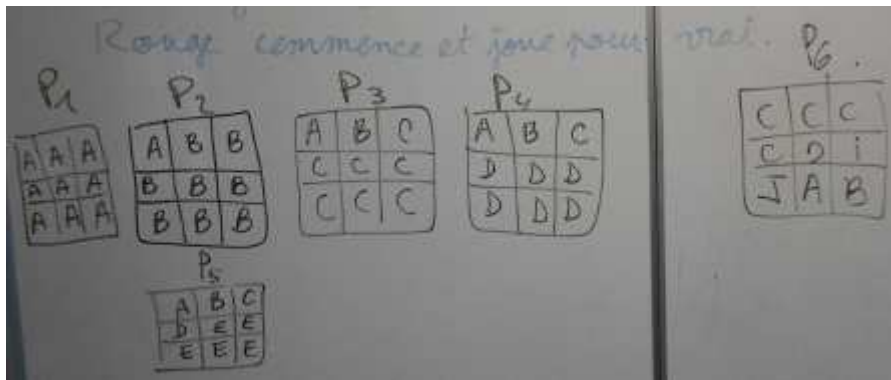 Rouge commence et joue pour vrai.
P1
A A A
A A A
A A A
P2
A B B
B B B
B B B
P3
A B C
C C C
C C C
P4
A B C
D D D
D D D
P5
A B C
D E E
E E E
P6.
C C C
C D i
J A B